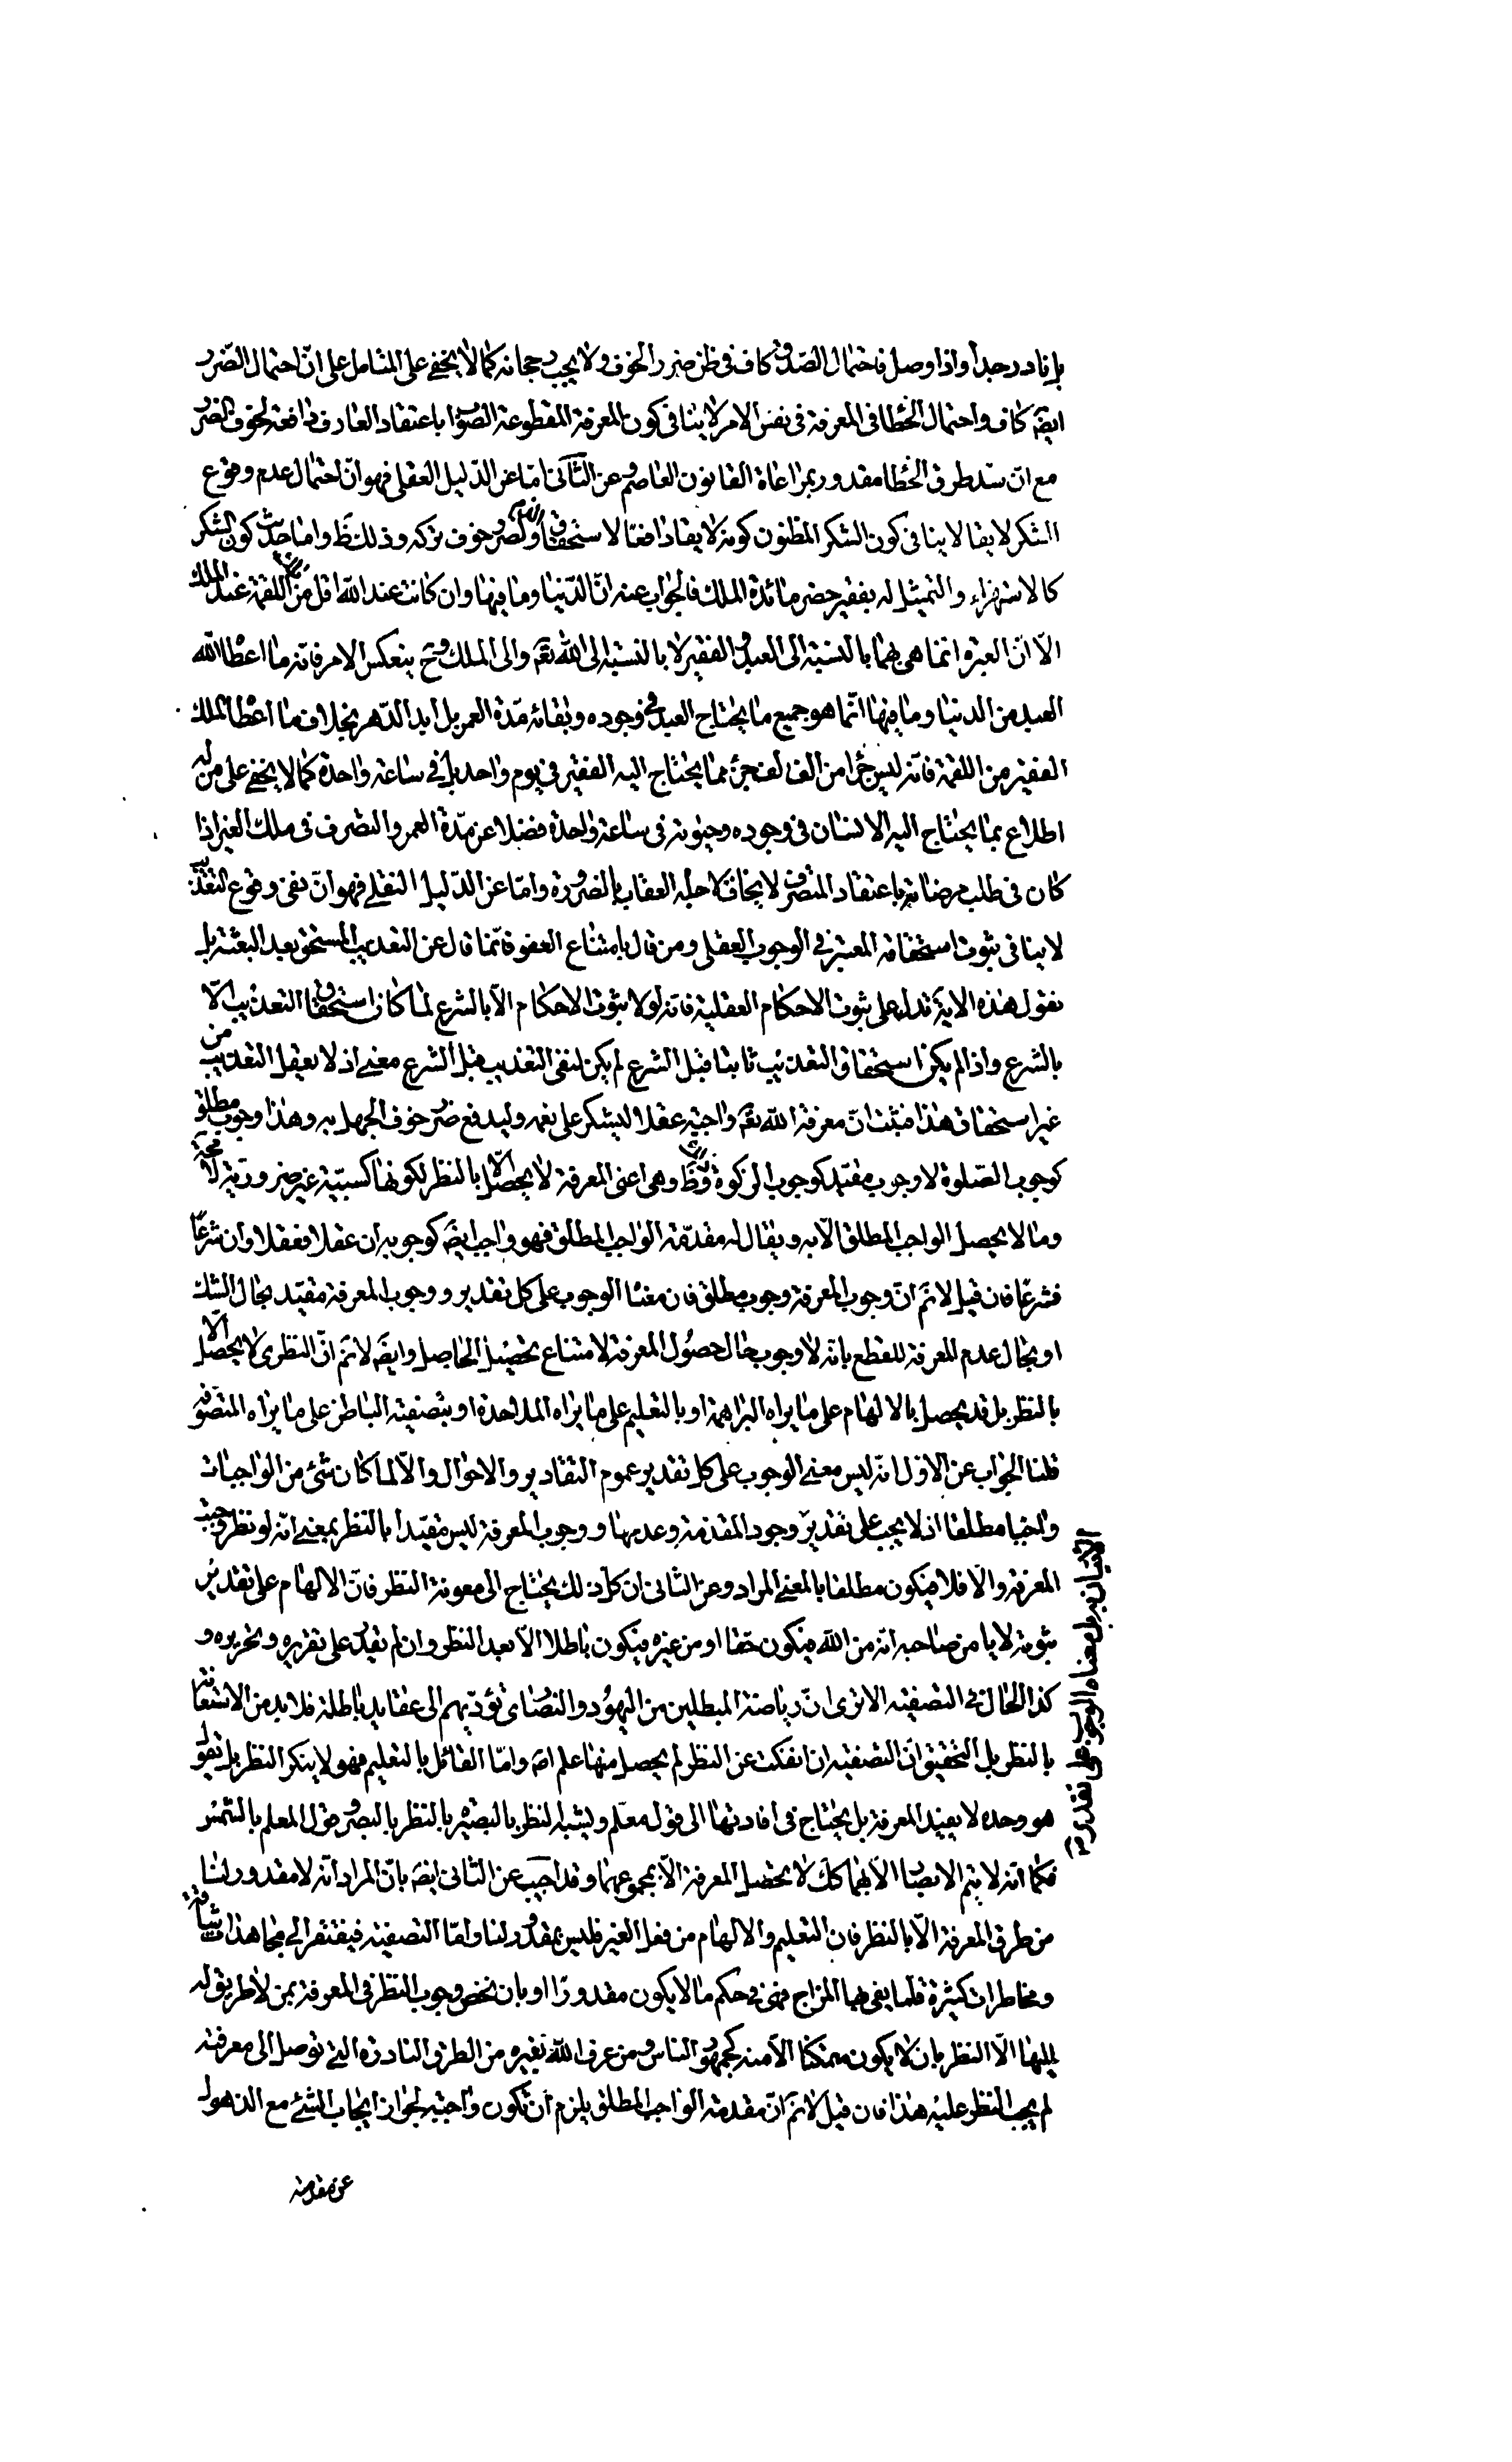 بل نادر جدا واذا وصل فاحتمال الصّدق كاف فى ظن ضرر الخوف ولا يجب رجحانه كما لا يخفى على المتامل على انّ احتمال الضّرر
ايضَ كاف واحتمال الخطا فى المعرفة فى نفس الامر لا ينافى كون المعرفة المقطوعة الصّواب باعتقاد العارف دافعة لخوف الضرر
مع انّ سدّ طرق الخطا مقدور بمراعاة القانون العاصم وعن الثّانى امّا عن الدّليل العقلى فهو انّ احتمال عدم وقوع
الشكر لايقا لا ينافى كون الشكر المظنون كونه لايقا دافعا لاستحقاق الذم ولضرر خوف تركه وذلك ظَ وامّا حديث كون الشكر
كالاستهزاء والتمثيل له بفقير حضر مائدة الملك فالجواب عنه انّ الدّنيا وما فيها وان كانت عند اللّه اقلّ من اللقمة عند الملك
الّا انّ العبرة انّما هى بهما بالنسبة الى العبد والفقير لا بالنسبة الى اللّه تعَ والى الملك وحَ ينعكس الامر فانّه ما اعطا اللّه
العبد من الدنيا وما فيها انّما هو جميع ما يحتاج العبد فى وجوده وبقائه مدّة العمر بل ابد الدّهر بخلاف ما اعطا الملك
الفقير من اللقمة فانّه ليس جزءا من الف الف جزء مما يحتاج اليه الفقير فى يوم واحد بل فى ساعة واحدة كما لا يخفى على من له
اطلاع بما يحتاج اليه الانسان فى وجوده وحيوته فى ساعة واحدة فضلا عن مدّة العمر والتصرف فى ملك الغير اذا
كان فى طلب مرضاته باعتقاد المتصرف لا يخاف لاجله العقاب بالضرورة وامّا عن الدّليل النقلى فهو انّ نفى وقوع التعذيب
لا ينافى ثبوت استحقاقه المعتبر فى الوجوب العقلى ومن قال بامتناع العفو فانّما قال عن التعذيب المستحق بعد البعثة بل
نقول هذه الاية تدل على ثبوت الاحكام العقلية فانه لولا ثبوت الاحكام الّا بالشرع لما كان استحقاق التعذيب الّا
بالشرع واذا لم يكن استحقاق التعذيب ثابتا قبل الشرع لم يكن لنفى التعذيب قبل الشرع معنى اذ لا يعقل التعذيب من
غير استحقاق هذا فثبت انّ معرفة اللّه تعَ واجبة عقلا ليشكر على نعمه وليدفع ضرر خوف الجهل به وهذا وجوب مطلق
كوجوب الصّلوة لا وجوب مقيّد كوجوب الزكوة وظَ وهى اعنى المعرفة لا يحصل الّا بالنظر لكونها كسبيّة غير ضروريّة
وما لا يحصل الواجب المطلق الّا به ويقال له مقدّمة الواجب المطلق فهو واجب ايضَ كوجوبه ان عقلا فعقلا وان شرعًا
فشرعًا فان قيل لا نمَ انّ وجوب المعرفة وجوب مطلق فان معنا الوجوب على كل تقدير ووجوب المعرفة مقيّد بحال الشك
او بحال عدم المعرفة للقطع بانّه لا وجوب حال حصول المعرفة لامتناع تحصيل الحاصل وايضَ لا نمَ انّ النظرى لا يحصل الّا
بالنظر بل قد يحصل بالالهام على ما يراه البراهمة او بالتعليم على ما يراه الملاحدة او بتصفية الباطن على ما يراه المتصوّفة
قلنا الجواب عن الاوّل انّه ليس معنى الوجوب على كل تقدير عموم التقادير والاحوال والّا لما كان شئ من الواجبات
واجبا مطلقا اذ لا يجب على تقدير وجود المقدّمة وعدمها ووجوب المعرفة ليس مقيّدا بالنظر بمعنى انّه لو نظر وجبت
المعرفة والّا فلا فيكون مطلقا بالمعنى المراد وعن الثانى ان كل ذلك يحتاج الى معونة النظر فانّ الالهام على تقدير
ثبوته لا يامن صاحبه انّه من اللّه فيكون حقا او من غيره فيكون باطلا الّا بعد النظر وان لم يقدر على تقريره وتحريره و
كذا الحال فى التصفية الا ترى انّ رياضة المبطلين من اليهود والنصارى تؤدّيهم الى عقايد باطلة فلا بد من الاستعانة
بالنظر بل التحقيق انّ التصفية ان انفكت عن النظر لم يحصل منها علم اصَ وامّا القائل بالتعليم فهو لا ينكر النظر بل يقول
هو وحده لا يفيد المعرفة بل يحتاج فى افادتها الى قول معلّم ويشبه النظر بالبصيرة بالنظر بالبصر وقول المعلم بالشمس
فكما انّه لا يتم الابصار الّا بهما كك لا يحصل المعرفة الّا بمجموعهما وقد اجيب عن الثانى ايضَ بانّ المراد انّه لا مقدور لنا
من طرق المعرفة الّا بالنظر فان التعليم والالهام من فعل الغير فليس بمقدور لنا وامّا التصفية فيفتقر الى مجاهدات شاقة
ومخاطرات كثيرة قلّما يفى بها المزاج فهى فى حكم ما لا يكون مقدورا او بان نخصّ وجوب النظر فى المعرفة بمن لا طريق له
اليها الّا النظر بان لا يكون متمكنا الّا منه كجمهور الناس ومن عرف اللّه بغيره من الطرق النادرة التى توصل الى معرفته
لم يجب النظر عليه هذا فان قيل لا نمَ انّ مقدمة الواجب المطلق يلزم ان تكون واجبة لجواز ايجاب الشئ مع الذهول
عن مقدمته
الاتيان به بل معناه الوجوب على تقدير